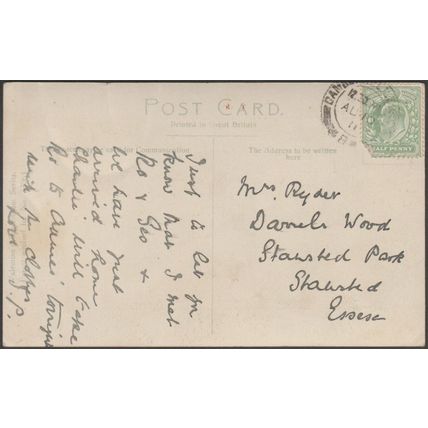 POST CARD.
Printed in Great Britain
for Communication
The Address to be written
here
HALF PENNY
Just to let you
know that I met
Ro & Geo &
we have just
arrived home
Charlie will take
Ro to Annies' tonight
with
Love
Mrs Ryder
Wood
Stansted Park
Stansted
Essex